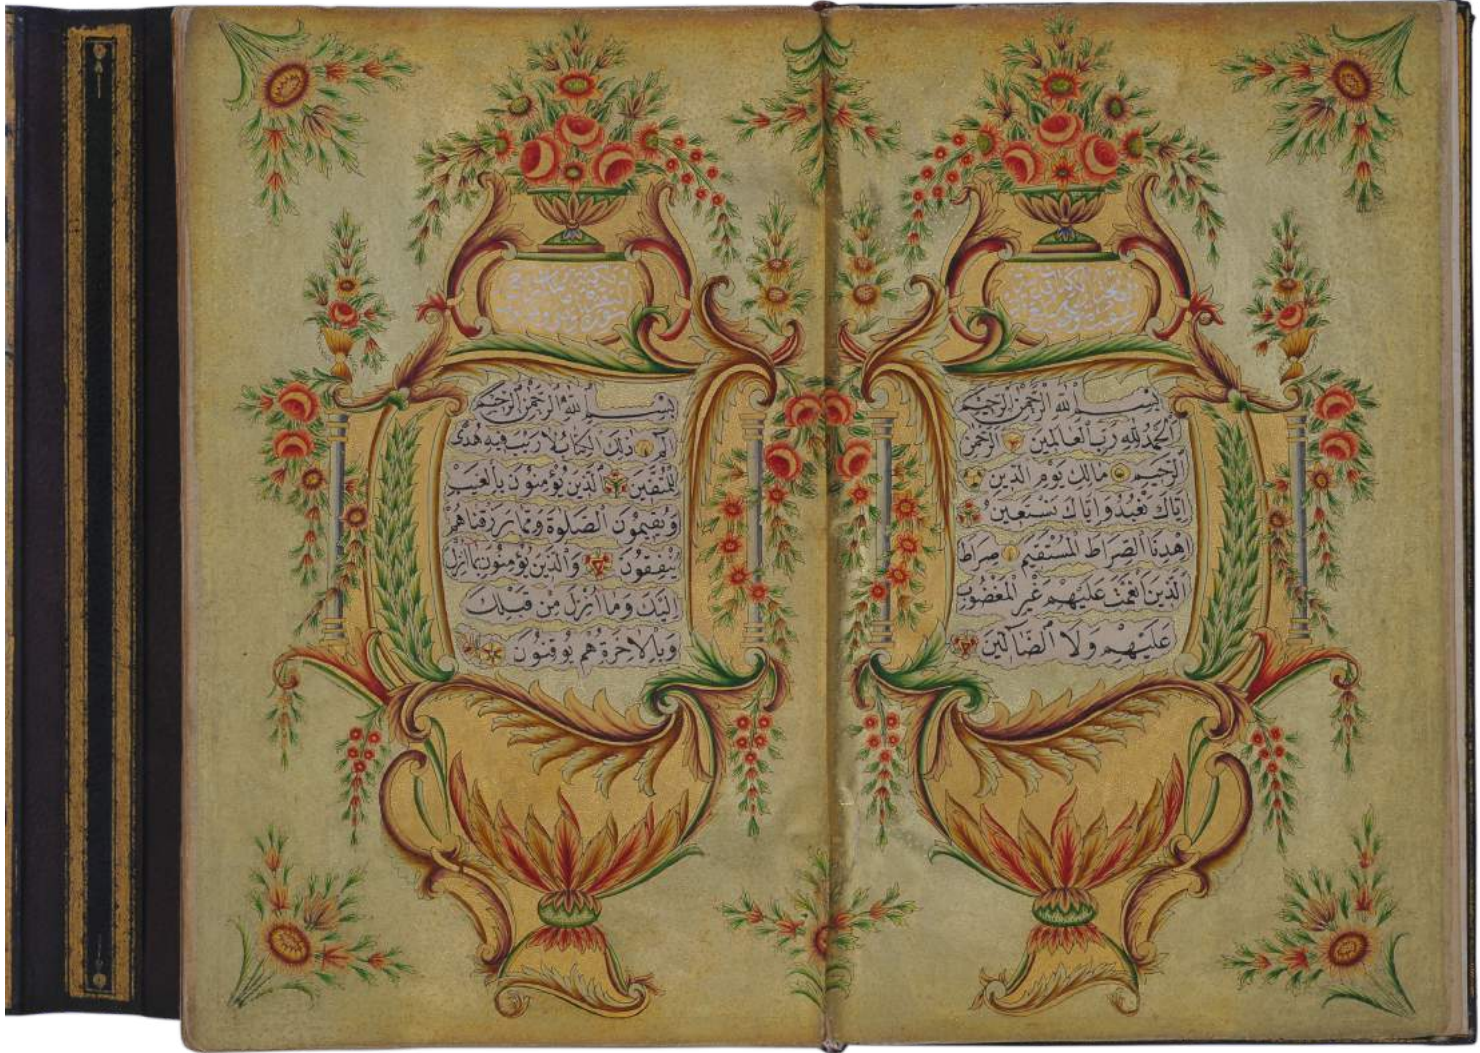 بسم الله الرحمن الرحيم
الحمد لله رب العالمين الرحمن
الرحيم مالك يوم الدين
اياك نعبد واياك نستعين
اهدنا الصراط المستقيم صراط
الذين انعمت عليهم غير المغضوب
عليهم ولا الضالين
سورة البقرة
بسم الله الرحمن الرحيم
الم ذلك الكتاب لا ريب فيه هدى
للمتقين الذين يؤمنون بالغيب
ويقيمون الصلوة ومما رزقناهم
ينفقون والذين يؤمنون بما انزل
اليك وما انزل من قبلك
وبالاخرة هم يوقنون